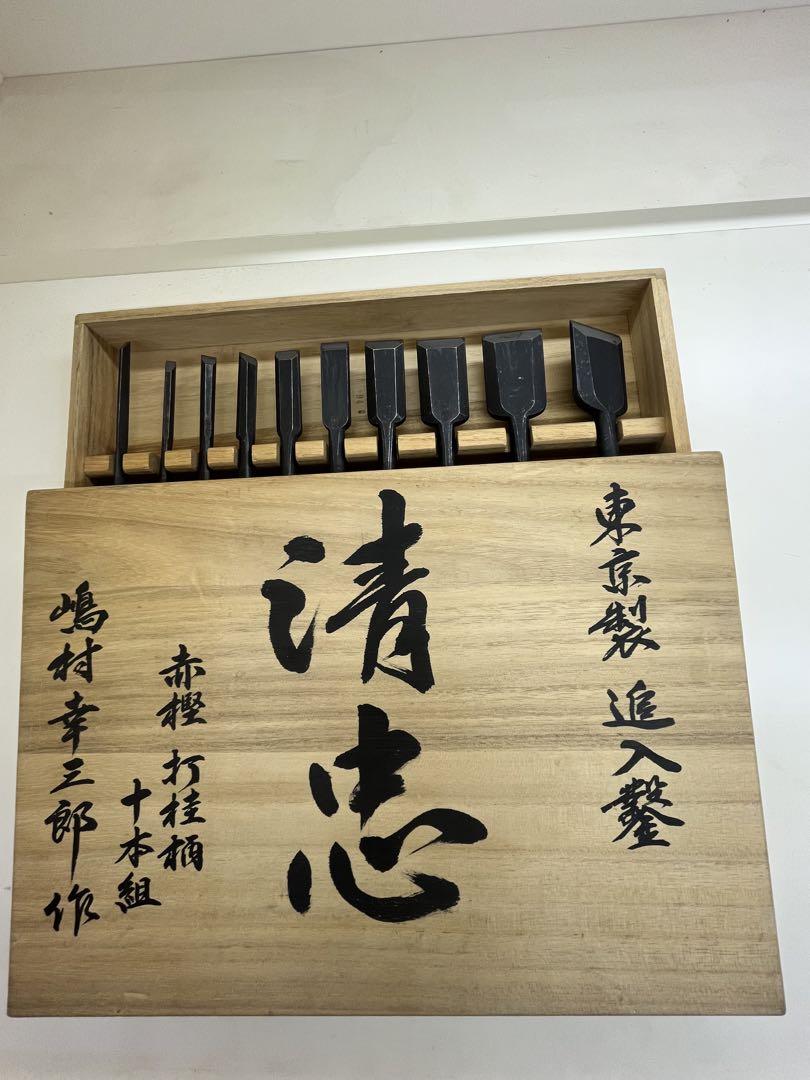 東京製 追入鑿
清忠
赤樫 打桂柄
十本組
嶋村幸三郎作